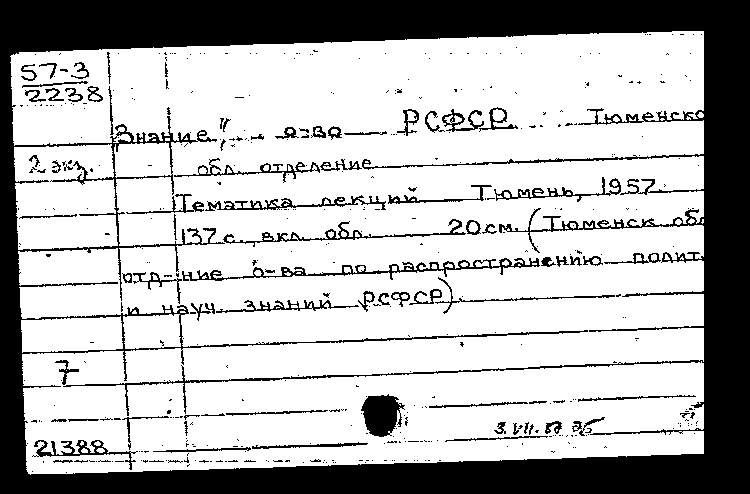 57-3
2238
Знание", о-во РСФСР. Тюменско
2 экз. обл. отделение
Тематика лекций Тюмень, 1957.
137 с., вкл. обл. 20 см. (Тюменск обл
отд-ние о-ва по распространению полит.
и науч. знаний РСФСР).
7
21388
3.VII.57